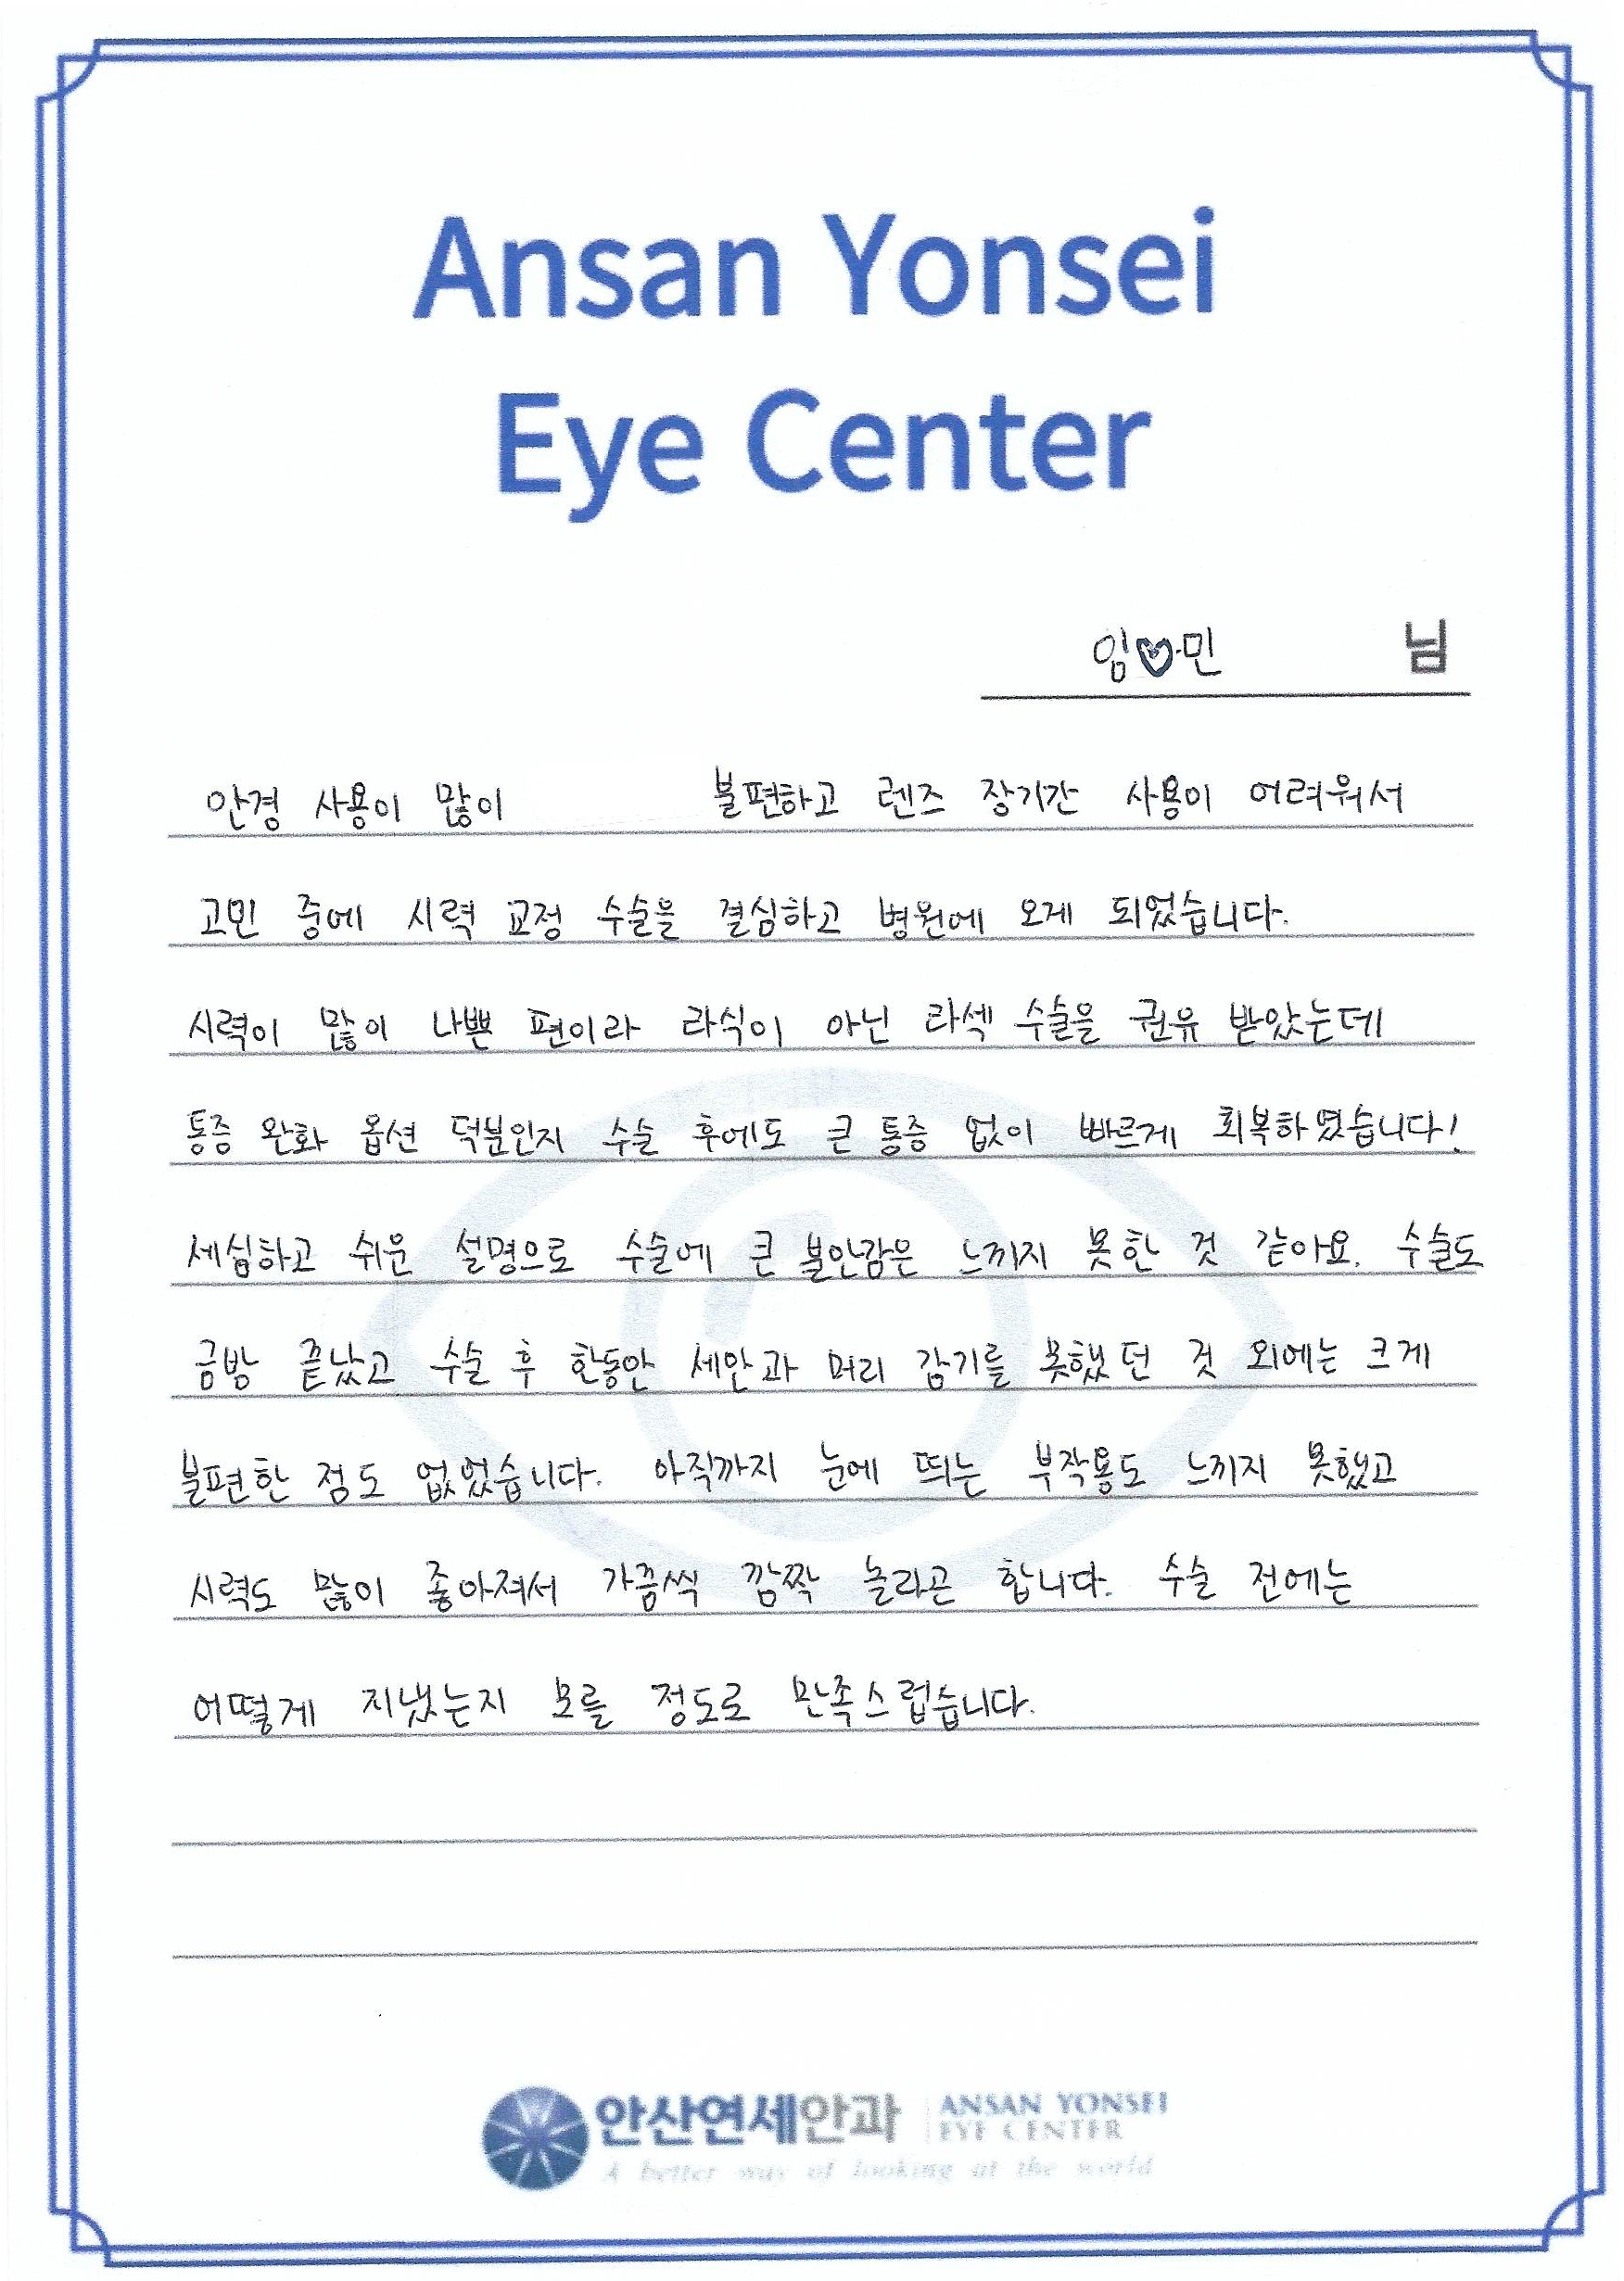 Ansan Yonsei
Eye Center
임♡민 님
안경 사용이 많이 불편하고 렌즈 장기간 사용이 어려워서
고민 중에 시력 교정 수술을 결심하고 병원에 오게 되었습니다.
시력이 많이 나쁜 편이라 라식이 아닌 라섹 수술을 권유 받았는데
통증 완화 옵션 덕분인지 수술 후에도 큰 통증 없이 빠르게 회복하였습니다!
세심하고 쉬운 설명으로 수술에 큰 불안감은 느끼지 못한 것 같아요. 수술도
금방 끝났고 수술 후 한동안 세안과 머리 감기를 못했던 것 외에는 크게
불편한 점도 없었습니다. 아직까지 눈에 띄는 부작용도 느끼지 못했고
시력도 많이 좋아져서 가끔씩 깜짝 놀라곤 합니다. 수술 전에는
어떻게 지냈는지 모를 정도로 만족스럽습니다.
안산연세안과 ANSAN YONSEI
EYE CENTER
A better way of looking at the world